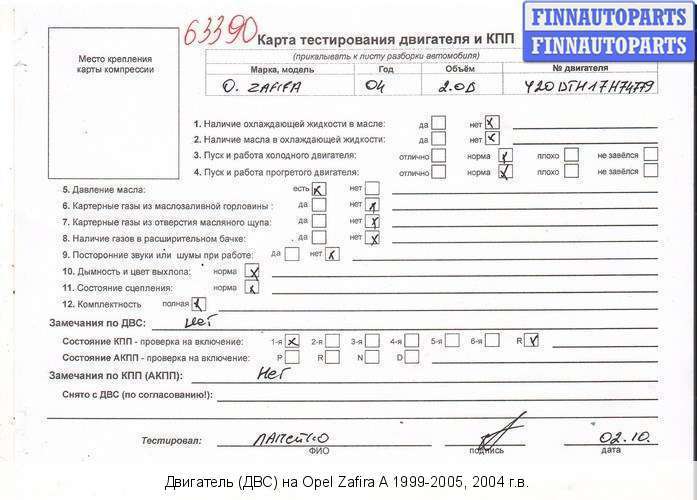 FINNAUTOPARTS
FINNAUTOPARTS
63390
Карта тестирования двигателя и КПП
(прикалывать к листу разборки автомобиля)
Место крепления
карты компрессии
Марка, модель Год Объём № двигателя
O. ZAFIFA 04 2.0D Y20DTH17H74779
1. Наличие охлаждающей жидкости в масле: да нет x
2. Наличие масла в охлаждающей жидкости: да нет x
3. Пуск и работа холодного двигателя: отлично норма x плохо не завёлся
4. Пуск и работа прогретого двигателя: отлично норма x плохо не завёлся
5. Давление масла: есть x нет
6. Картерные газы из маслозаливной горловины : да нет x
7. Картерные газы из отверстия масляного щупа: да нет x
8. Наличие газов в расширительном бачке: да нет x
9. Посторонние звуки или шумы при работе: да нет x
10. Дымность и цвет выхлопа: норма x
11. Состояние сцепления: норма x
12. Комплектность полная x
Замечания по ДВС: нет
Состояние КПП - проверка на включение: 1-я x 2-я 3-я 4-я 5-я 6-я R v
Состояние АКПП - проверка на включение: P R N D
Замечания по КПП (АКПП): Нет
Снято с ДВС (по согласованию!):
Тестировал: 02.10.
ФИО подпись дата
Двигатель (ДВС) на Opel Zafira A 1999-2005, 2004 г.в.